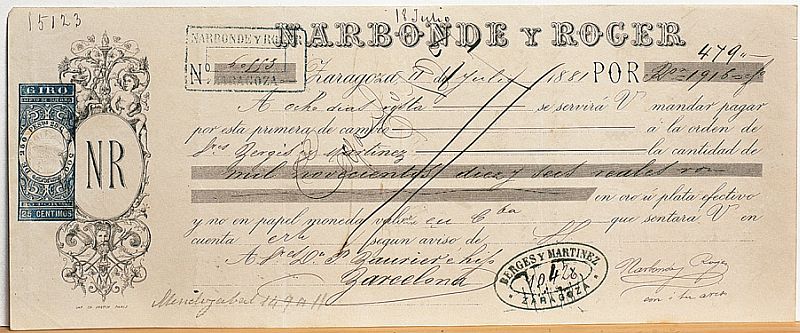 15123
18 Julio
NARBONDE Y ROGER
NARBONDE Y ROGER
ZARAGOZA
479
Nº Zaragoza 11 Julio 1881 POR Rs. vn. 1916
A ocho dias vista se servirá V mandar pagar
por esta primera de cambio á la orden de
Sres Bergés y Martinez la cantidad de
mil novecientos diez y seis reales vn
en oro ú plata efectivo
y no en papel moneda valor en Cta que sentará V en
cuenta segun aviso de
A
Barcelona
GIRO
25 CENTIMOS
NR
BERGES Y MARTINEZ
ZARAGOZA
Narbonde y Roger